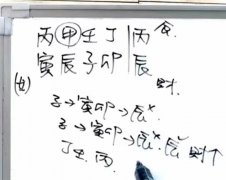 丙甲壬丁|丙 食
寅辰子卯|辰
(女) 财
子→寅卯→辰×
子→寅卯→辰×辰✓财↑
丁壬丙